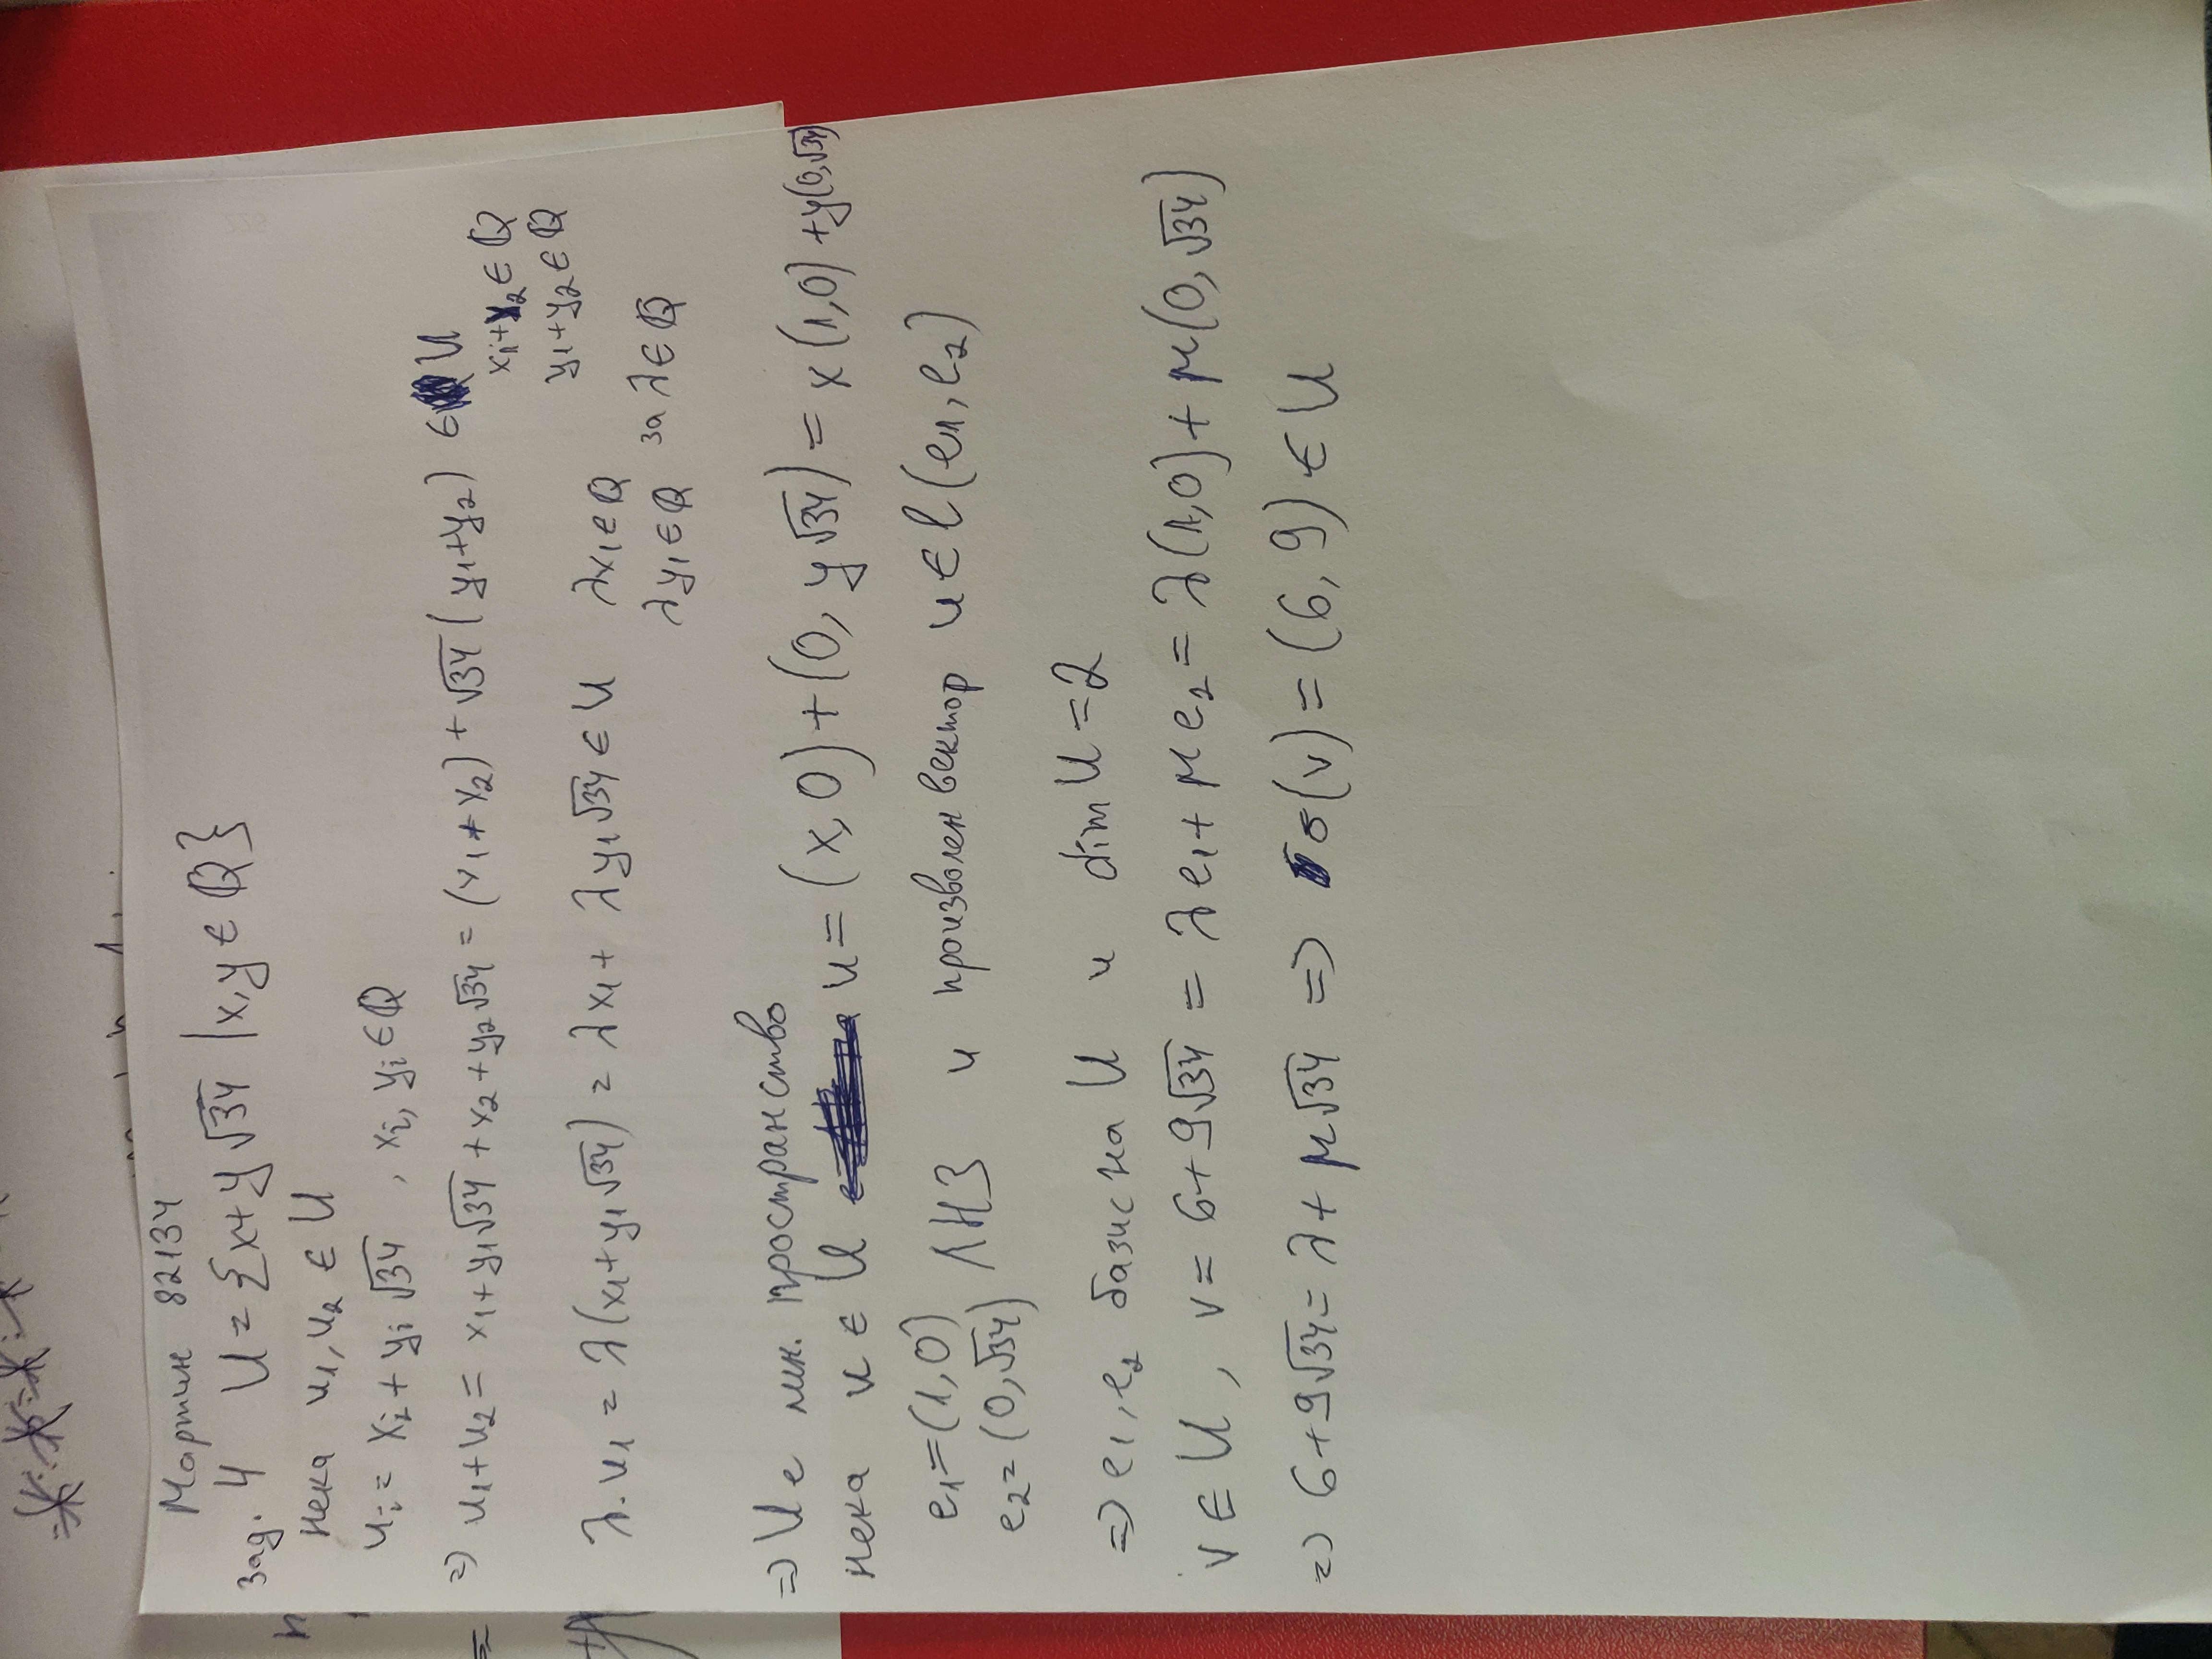 Мартин 82134
Зад. 4 U = {x+y√34 | x, y ∈ ℚ}
Нека u₁, u₂ ∈ U
uᵢ = xᵢ + yᵢ √34 , xᵢ, yᵢ ∈ ℚ
=> u₁+u₂ = x₁+y₁√34 + x₂+y₂√34 = (x₁+x₂) + √34 (y₁+y₂) ∈ U
x₁+x₂ ∈ ℚ
y₁+y₂ ∈ ℚ
λ.u₁ = λ(x₁+y₁√34) = λx₁ + λy₁√34 ∈ U λx₁ ∈ ℚ
λy₁ ∈ ℚ за λ ∈ ℚ
=> U е лин. пространство
Нека u ∈ U u = (x, 0) + (0, y√34) = x(1,0) + y(0,√34)
e₁=(1,0)
e₂=(0,√34) ЛНЗ и произволен вектор u ∈ ℓ(e₁, e₂)
=> e₁, e₂ базис на U и dim U = 2
v ∈ U, v = 6+9√34 = λe₁ + μe₂ = λ(1,0) + μ(0, √34)
=> 6+9√34 = λ + μ√34 => σ(v) = (6, 9) ∈ U